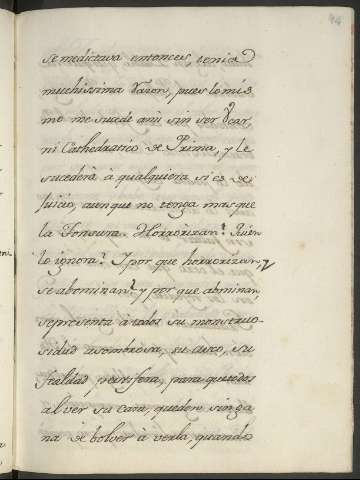 94
se medictava entonces, tenia
muchissima razon, pues lo mis
mo me sucede a mi sin ser Vicar,
ni Cathedratico de Prima, y le
sucederà à qualquiera si es de
juicio, aunque no tenga mas que
la Tonsura. Horrorizan? Quien
lo ignora? I por que horrorizan, y
se abominan? y por que abominan,
se presenta à todos su monstruo-
sidad asombrosa, su asco, su
fealdad pestifera, para que todos
al ver su cara, queden sin ga
na de bolver à verla, quando